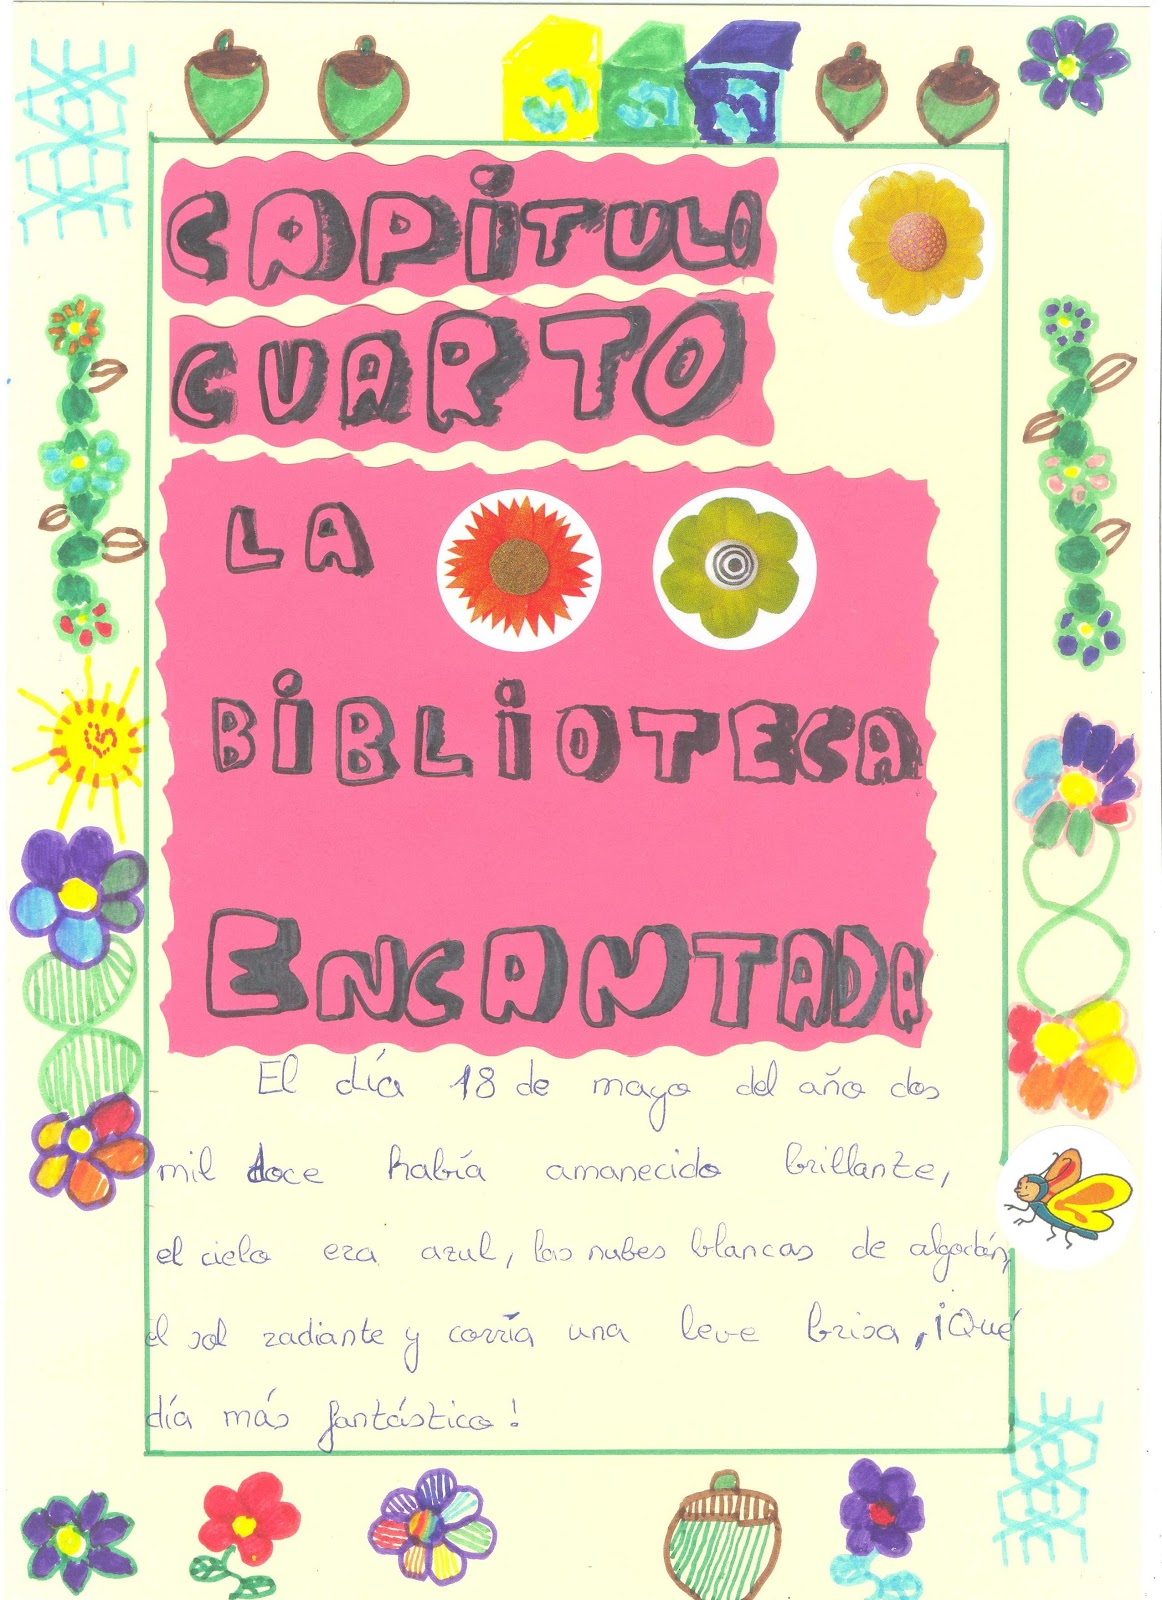 CAPiTULO
CUARTO
LA
BiBLiOTECA
ENCANTADA
El día 18 de mayo del año dos
mil doce había amanecido brillante,
el cielo era azul, las nubes blancas de algodón,
el sol radiante y corría una leve brisa, ¡Qué
día más fantástico!